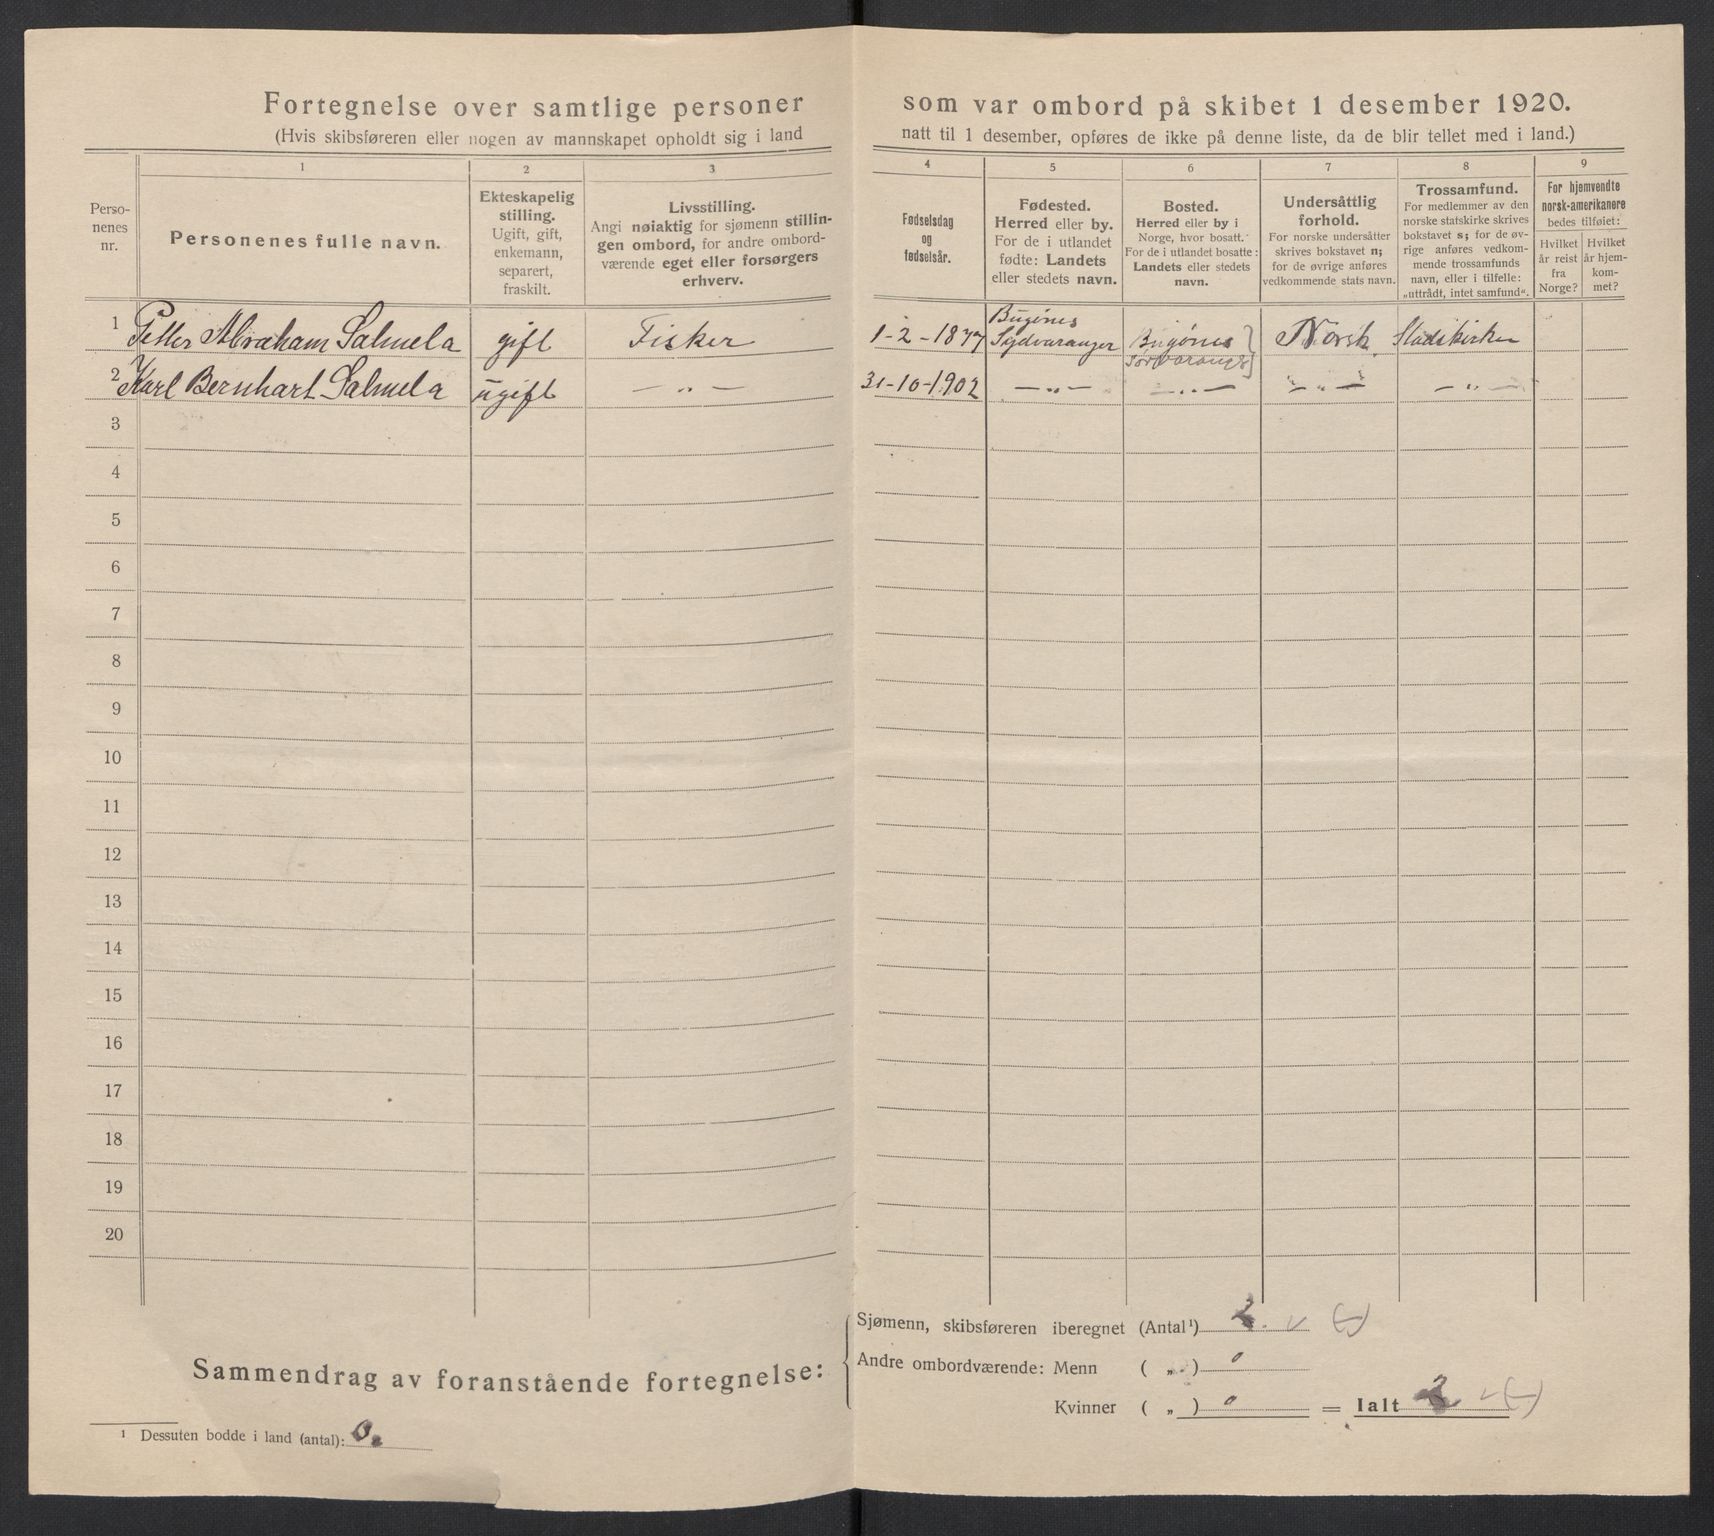 Fortegnelse over samtlige personer som var ombord på skibet 1 desember 1920.
(Hvis skibsføreren eller nogen av mannskapet opholdt sig i land natt til 1 desember, opføres de ikke på denne liste, da de blir tellet med i land.)
Perso-
nenes
nr.
1
Personenes fulle navn.
2
Ekteskapelig
stilling.
Ugift, gift,
enkemann,
separert,
fraskilt.
3
Livsstilling.
Angi nøiaktig for sjømenn stillin-
gen ombord, for andre ombord-
værende eget eller forsørgers
erhverv.
4
Fødselsdag
og
fødselsår.
5
Fødested.
Herred eller by.
For de i utlandet
fødte: Landets
eller stedets navn.
6
Bosted.
Herred eller by i
Norge, hvor bosatt.
For de i utlandet bosatte:
Landets eller stedets
navn.
7
Undersåttlig
forhold.
For norske undersåtter
skrives bokstavet n;
for de øvrige anføres
vedkommende stats navn.
8
Trossamfund.
For medlemmer av den
norske statskirke skrives
bokstavet s; for de øv-
rige anføres vedkom-
mende trossamfunds
navn, eller i tilfelle:
„uttrådt, intet samfund".
9
For hjemvendte
norsk-amerikanere
bedes tilføiet:
Hvilket
år reist
fra
Norge?
Hvilket
år hjem-
kom-
met?
1 Petter Abraham Salmela gift Fisker 1-2-1877 Bugönes
Sydvaranger Bugönes }
Sørvaranger Norsk Statskirken
2 Karl Bernhart Salmela ugift — „ — 31-10-1902 — „ — — „ — — „ — — „ —
3
4
5
6
7
8
9
10
11
12
13
14
15
16
17
18
19
20
Sammendrag av foranstående fortegnelse:
Sjømenn, skibsføreren iberegnet (Antal¹) 2. v (-)
Andre ombordværende: Menn ( „ ) 0
Kvinner ( „ ) 0 = Ialt 2 v (-)
¹ Dessuten bodde i land (antal): 0